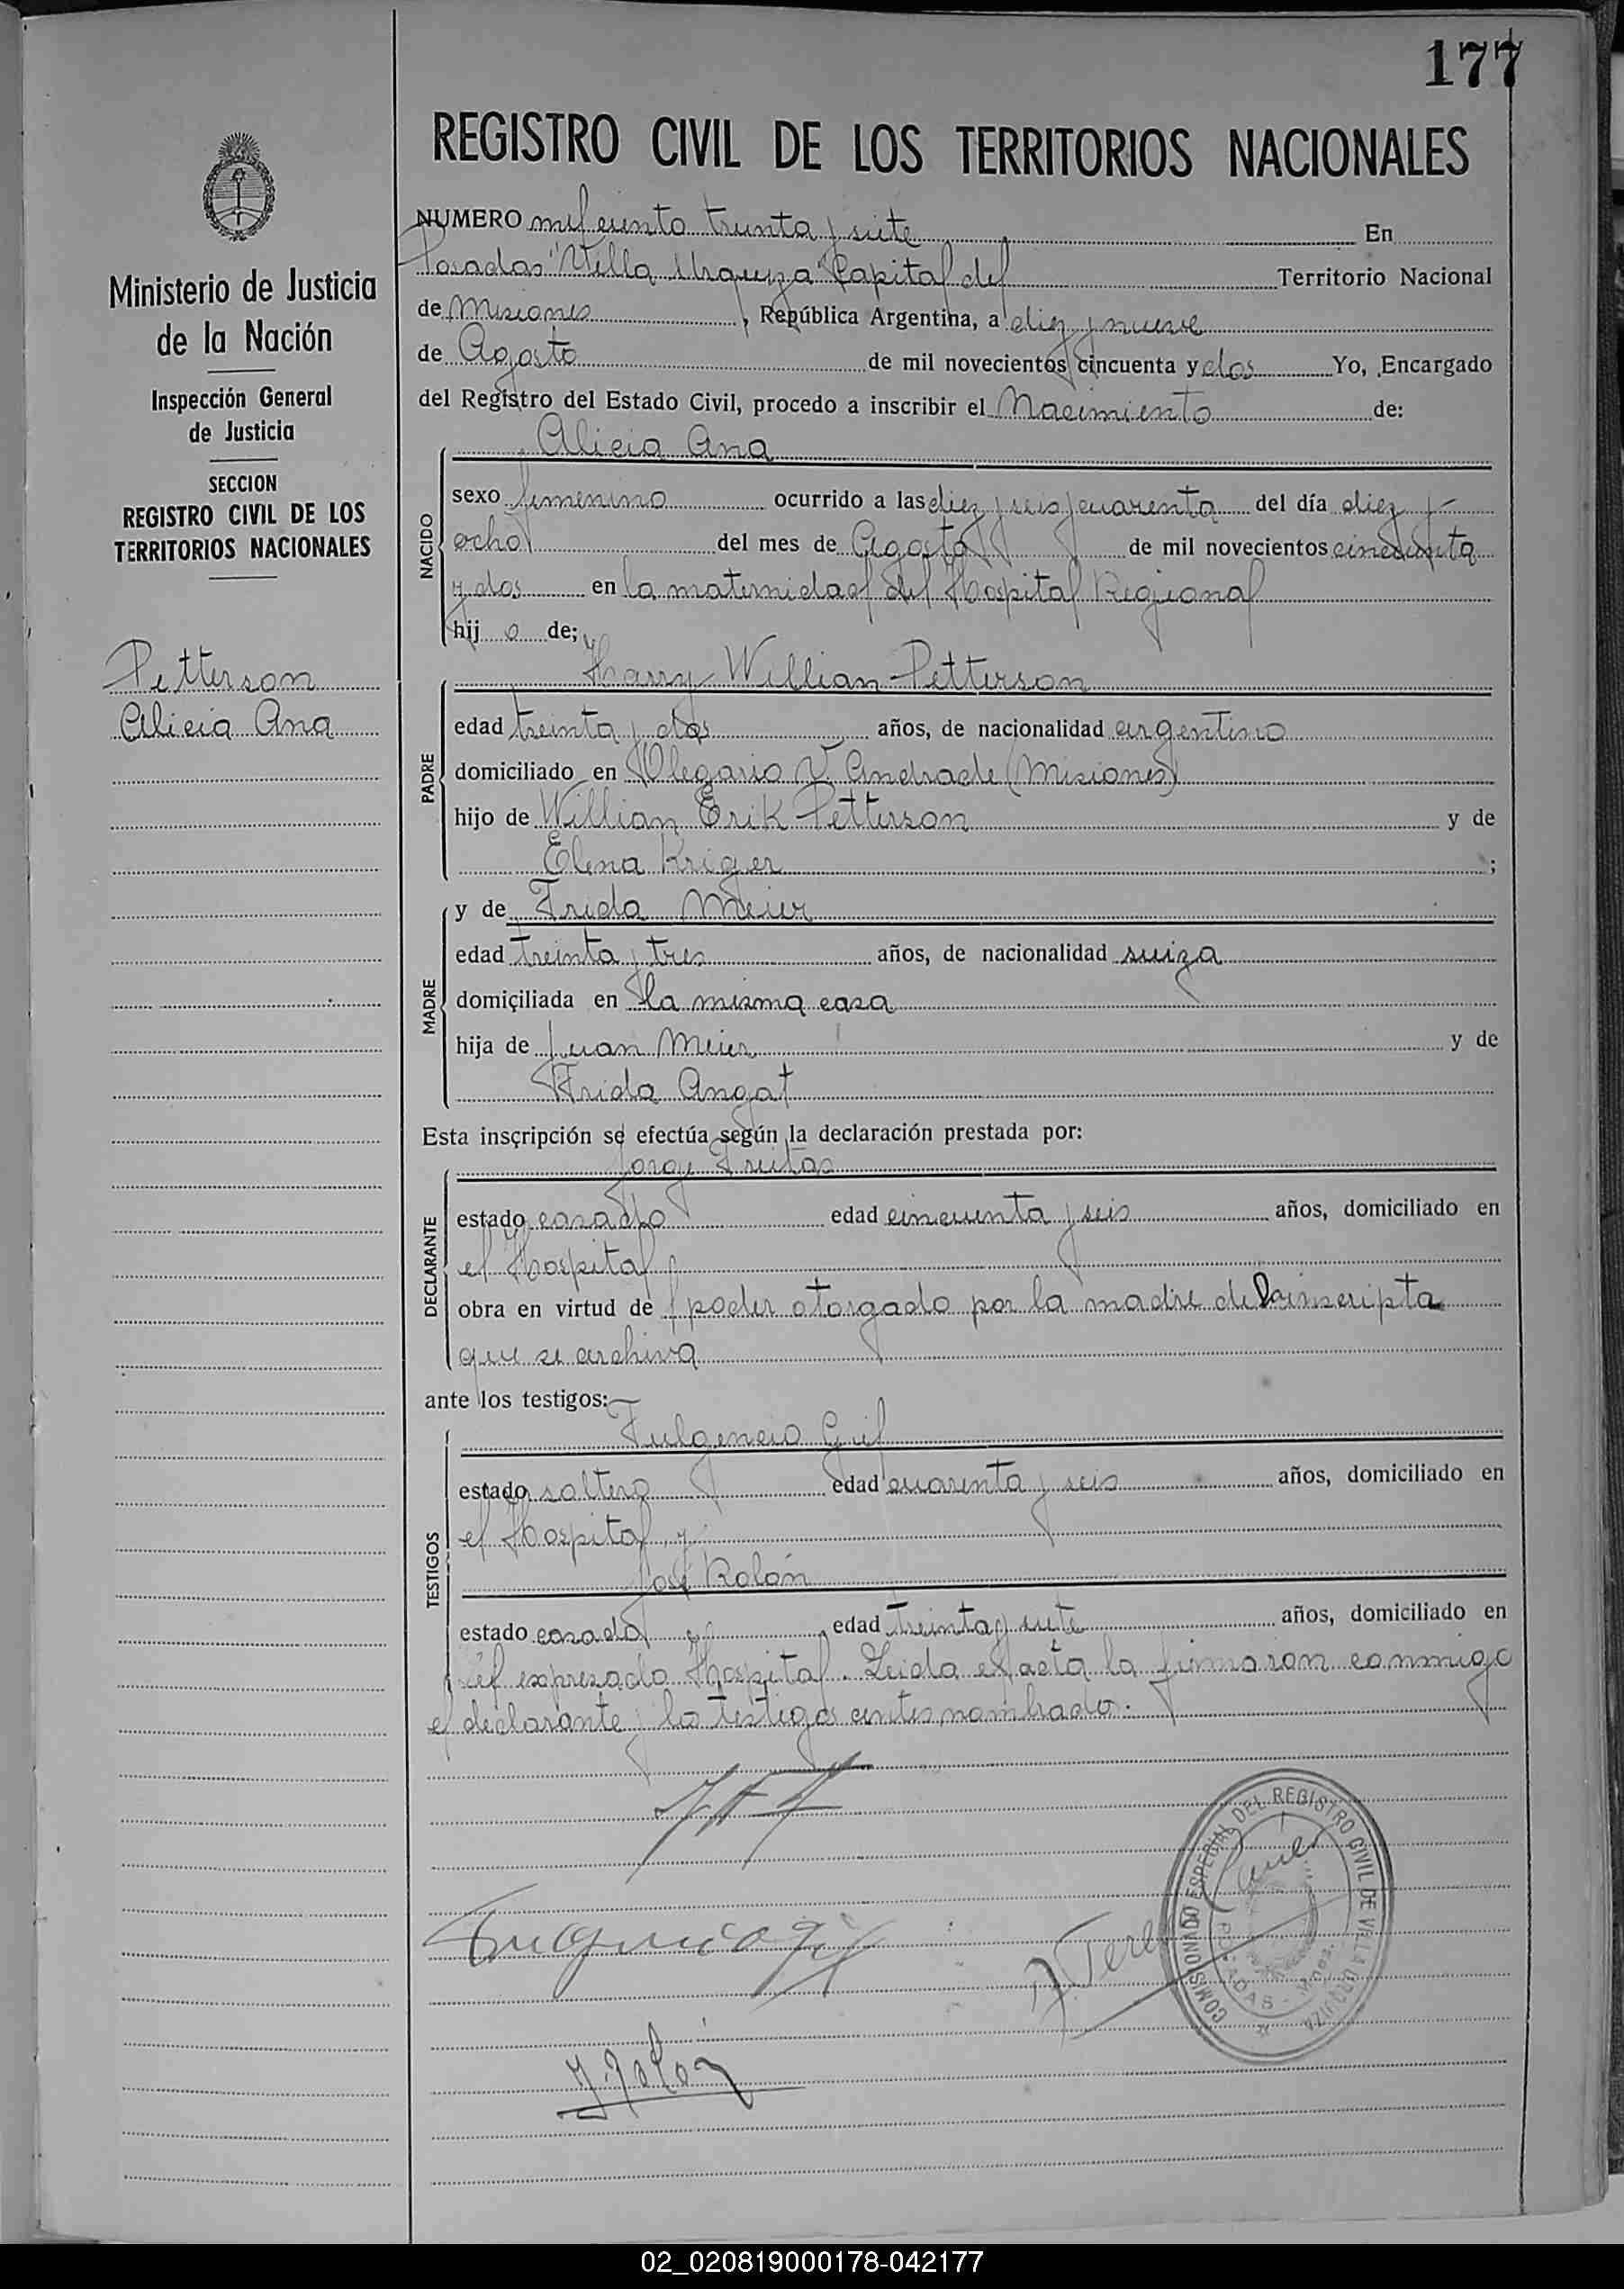 177
REGISTRO CIVIL DE LOS TERRITORIOS NACIONALES
Ministerio de Justicia
de la Nación
Inspección General
de Justicia
SECCION
REGISTRO CIVIL DE LOS
TERRITORIOS NACIONALES
Petterson
Alicia Ana
NUMERO mil ciento treinta y siete En
Posadas "Villa Urquiza" Capital del Territorio Nacional
de Misiones, República Argentina, a diez y nueve
de Agosto de mil novecientos cincuenta y dos Yo, Encargado
del Registro del Estado Civil, procedo a inscribir el Nacimiento de:
NACIDO
Alicia Ana
sexo femenino ocurrido a las diez y seis y cuarenta del día diez y
ocho del mes de Agosto de mil novecientos cincuenta
y dos en la maternidad del Hospital Regional
hij a de;
PADRE
Harry Willian Petterson
edad treinta y dos años, de nacionalidad argentino
domiciliado en Olegario V. Andrade (Misiones)
hijo de Willian Erik Petterson y de
Elena Kriger ;
MADRE
y de Frida Meier
edad treinta y tres años, de nacionalidad suiza
domiciliada en la misma casa
hija de Juan Meier y de
Frida Angat
Esta inscripción se efectúa según la declaración prestada por:
DECLARANTE
Jorge Freitas
estado casado edad cincuenta y seis años, domiciliado en
el Hospital
obra en virtud de poder otorgado por la madre de la inscripta
que se archiva
ante los testigos:
TESTIGOS
Fulgencio Gil
estado soltero edad cuarenta y seis años, domiciliado en
el Hospital y
José Rolón
estado casado edad treinta y siete años, domiciliado en
el expresado Hospital. Leida el acta la firmaron conmigo
el declarante y los testigos antes nombrados.
COMISIONADO ESPECIAL DEL REGISTRO CIVIL DE VILLA URQUIZA
POSADAS
J. Rolon
02_020819000178-042177